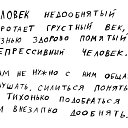 ЧЕЛОВЕК НЕДООБНЯТЫЙ
КОРОТАЕТ ГРУСТНЫЙ ВЕК,
ЖИЗНЬЮ ЗДОРОВО ПОМЯТЫЙ
ДЕПРЕССИВНЫЙ ЧЕЛОВЕК.
НАМ НЕ НУЖНО С НИМ ОБЩА
СЛУШАТЬ, СИЛИТЬСЯ ПОНЯТЬ
ТИХОНЬКО ПОДОБРАТЬСЯ
И ВНЕЗАПНО ДООБНЯТЬ.